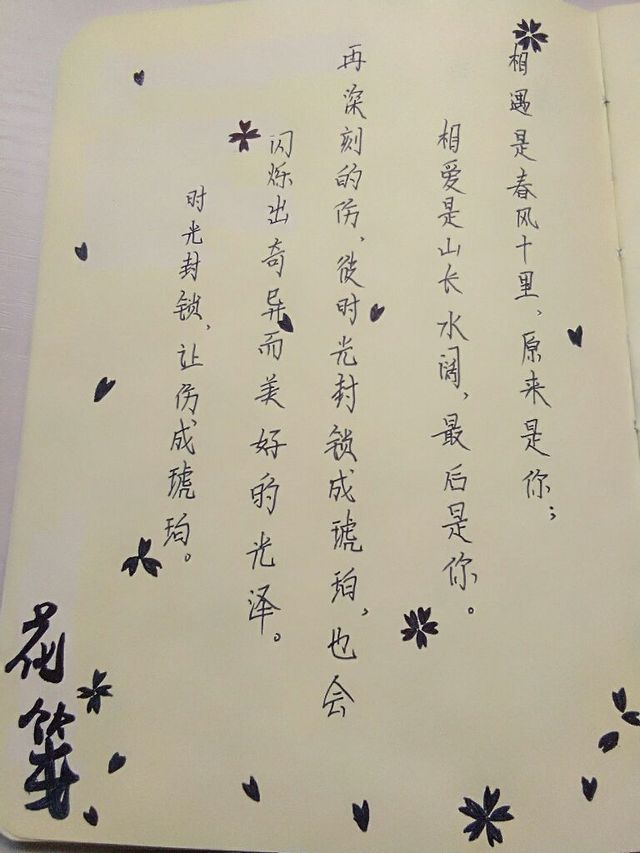 相遇是春风十里、原来是你；
相爱是山长水阔，最后是你。
再深刻的伤、待时光封锁成琥珀，也会
闪烁出奇异而美好的光泽。
时光封锁，让伤成琥珀。
花笺